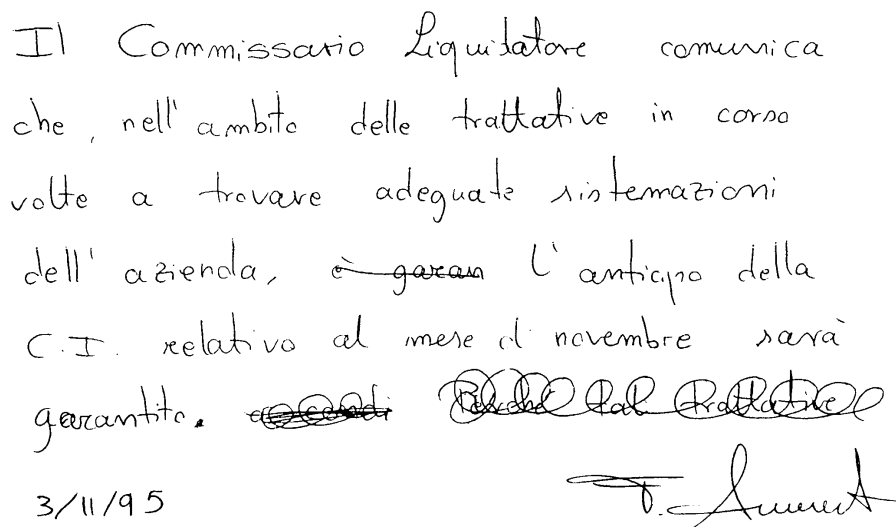 Il Commissario Liquidatore comunica
che, nell'ambito delle trattative in corso
volte a trovare adeguate sistemazioni
dell'azienda, è garan l'anticipo della
C.I. relativo al mese di novembre sarà
garantito. Perché tal trattative
3/11/95